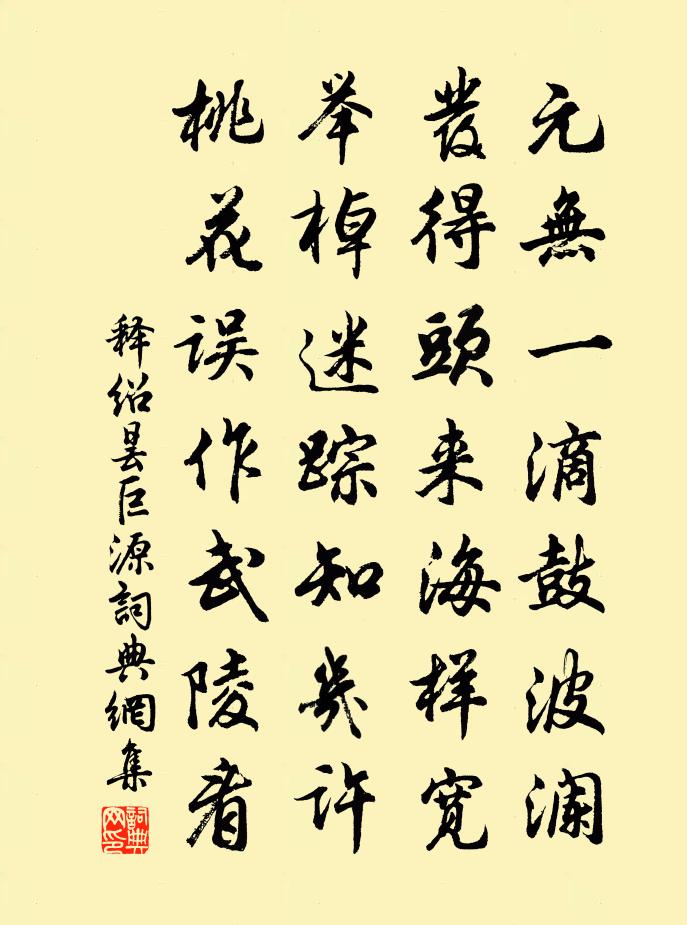 元無一滴鼓波澜
發得頭来海样宽
举棹迷踪知幾许
桃花误作武陵看
释绍昙巨源詞典網集
詞典网印